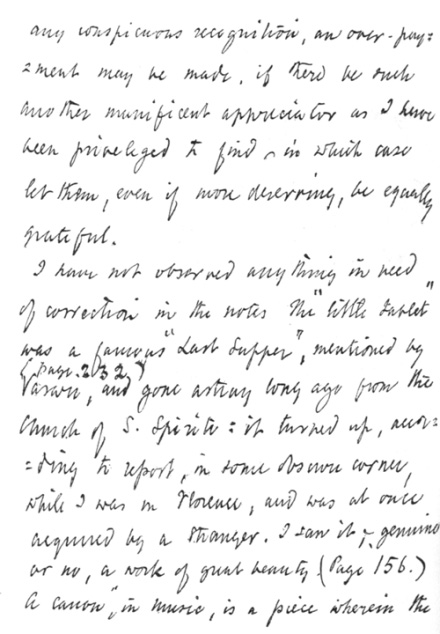 any conspicuous recognition, an over-pay=
=ment may be made, if there be such
another munificent appreciator as I have
been privileged to find - in which case
let them, even if more deserving, be equally
grateful.
I have not observed anything in need
of correction in the notes. The "little tablet"
was a famous "Last Supper", mentioned by
(page. 232.)
Vasari, and gone astray long ago from the
Church of S. Spirito: it turned up, accor=
=ding to report, in some obscure corner,
while I was in Florence, and was at once
acquired by a stranger. I saw it, genuine
or no, a work of great beauty. (Page 156.)
A canon", in music, is a piece wherein the